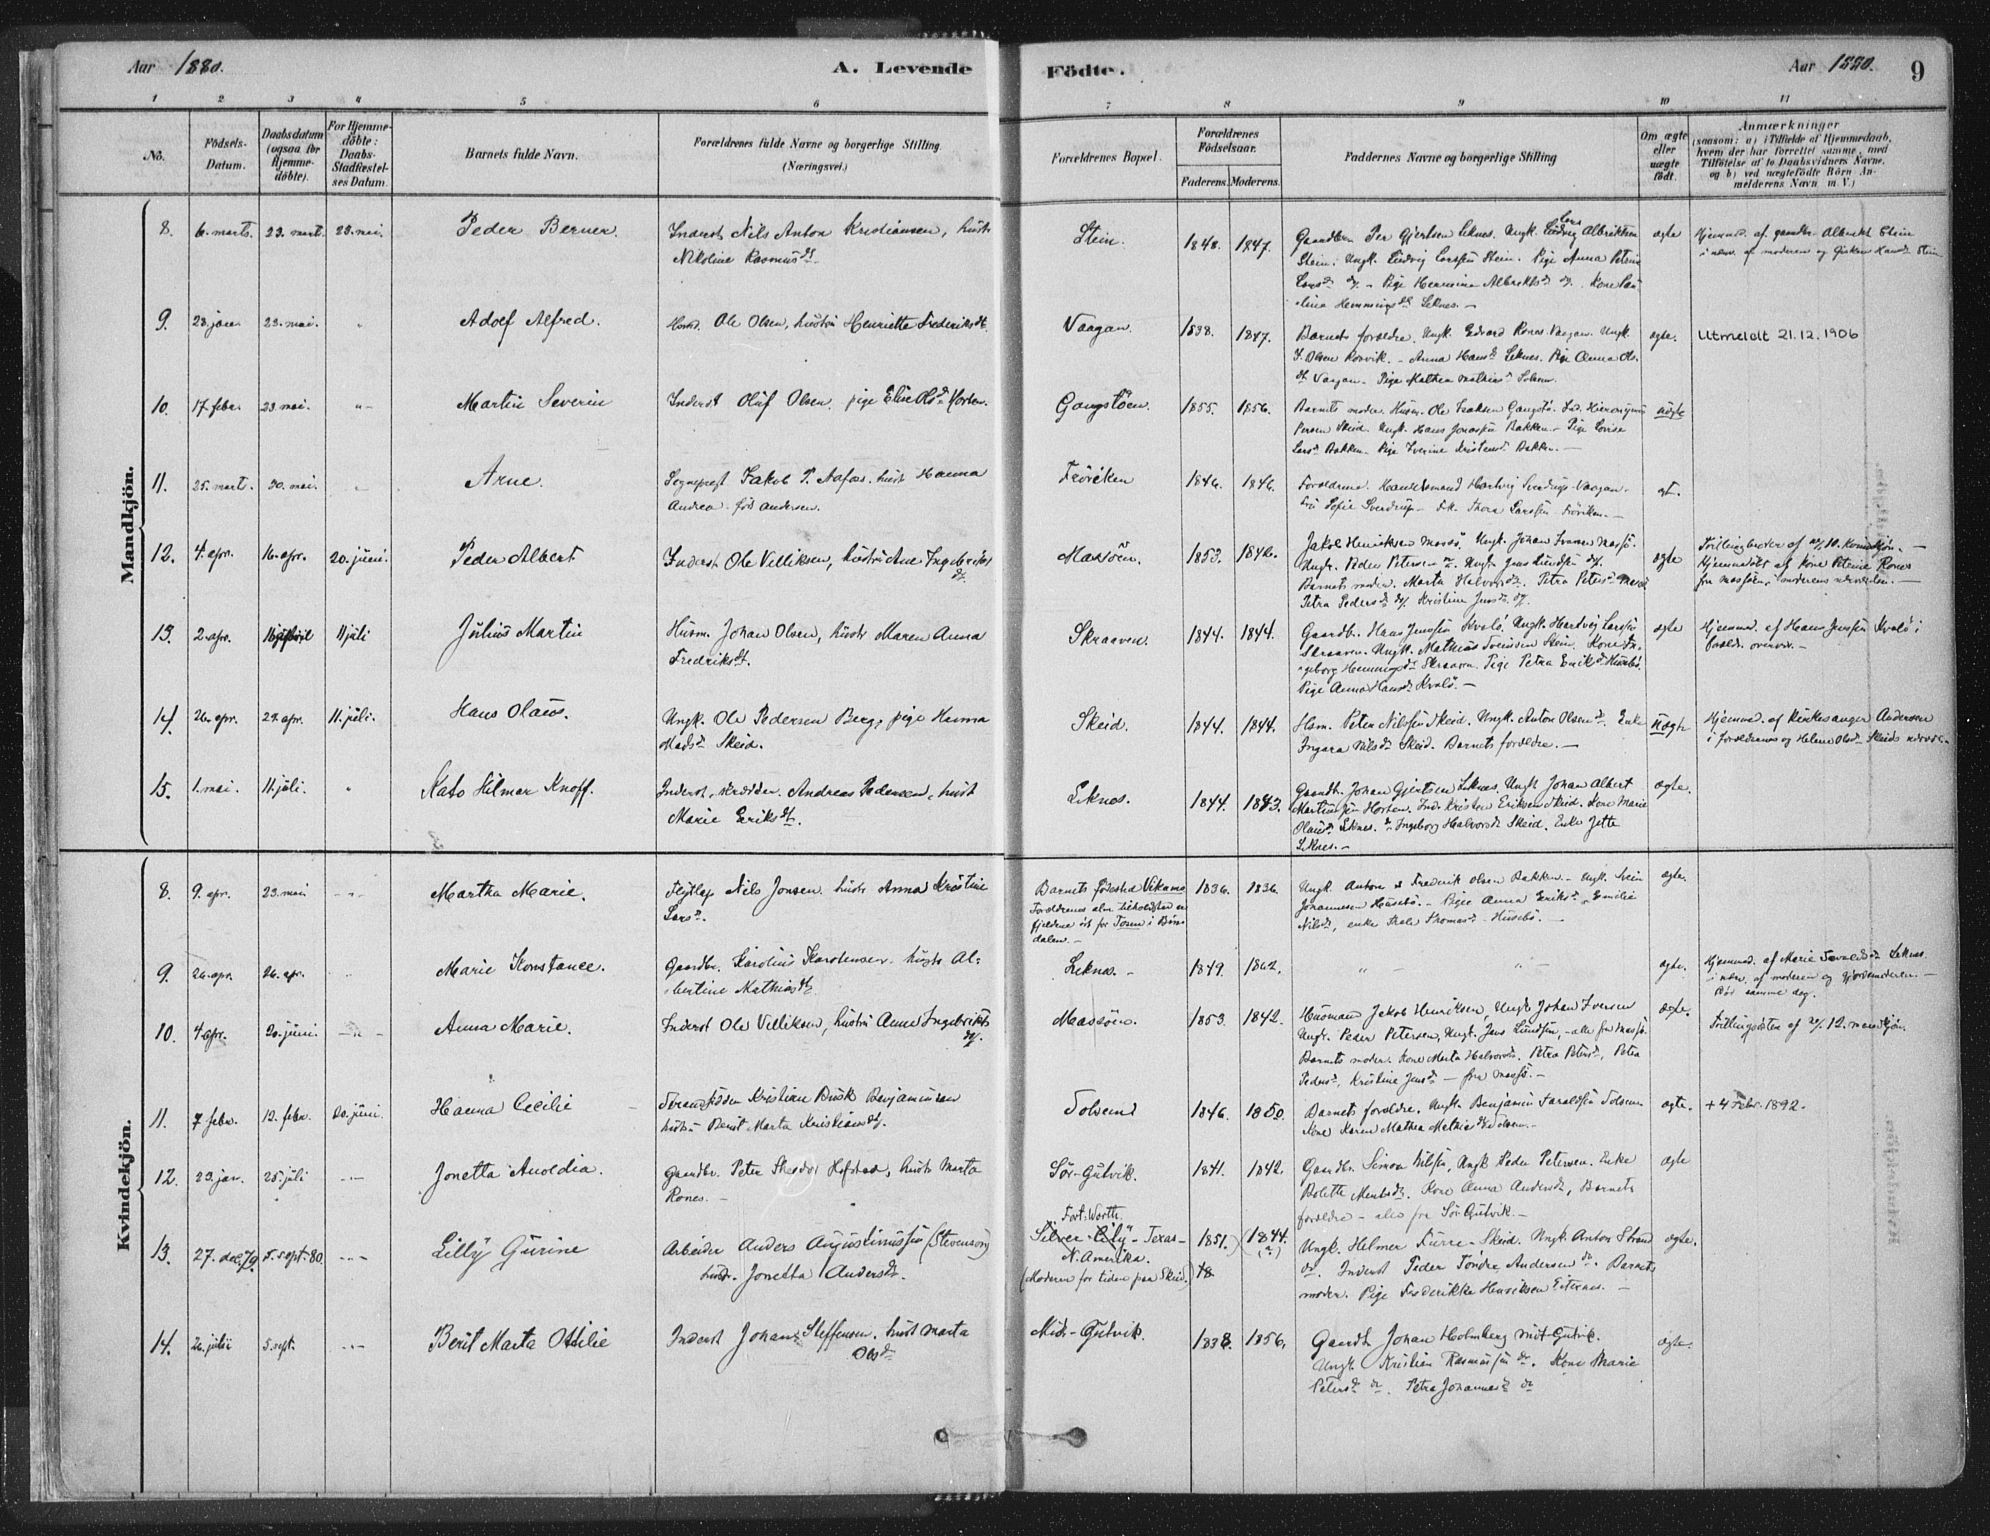 Aar 1880.
A. Levende Födte.
Aar 1880.
9
1 2 3 4 5 6 7 8 9 10 11
No.
Födsels-Datum.
Daabsdatum (ogsaa for Hjemme-döbte).
For Hjemme-döbte: Daabs-Stadfæstel-ses Datum.
Barnets fulde Navn.
Forældrenes fulde Navne og borgerlige Stilling (Næringsvei.)
Forældrenes Bopæl.
Forældrenes Födselsaar.
Faderens. Moderens.
Faddernes Navne og borgerlige Stilling
Om ægte eller uægte födt.
Anmærkninger
(saasom: a) i Tilfælde af Hjemmedaab, hvem der har forrettet samme, med Tilföielse af to Daabsvidners Navne, og b) ved uægtefödte Börn An-melderens Navn m. V.)
Mandkjön.
8. 6. marts. 23. mart. 23. mai. Peder Berner. Inderst Nils Anton Kristiansen, hustr
Nikoline Rasmusdt.
Stein. 1848. 1847. Gaardbr. Per Gjertsen Leknes. Ungk. Ludvig Albriktsen
Stein. Ungk. Ludvig Larssen Stein. Pige Anna Petrine
ægte
9. 23. jan. 23. mai. " Adolf Alfred. Ole Olsen, hustru Henriette Frederiksdt.
Vaagan. 1838. 1847. Barnets forældre. Ungk. Edvard Vaagan. Ungk.
ægte. Utmeldt 21.12.1906
10. 17. febr. 23. mai. " Martin Severin Inderst Oluf Olsen. pige Eline Olsd. Horsen.
Gangstöen. 1855. 1856. Barnets moder. Husm. Ole Isaksen Gangstö.
Persen Skeid. Ungk. Hans Jonassen Bakken. Pige Lovise
Larsd. Bakken. Pige Bakken.
uægte
11. 25. mart. 30. mai. " Arne. Sognepræst Jakob P. hustr Hanna
Andrea. föd Andersen.
Fröviken 1846. 1846. Forældrene. Handelsmand Hartvig Sverdrup Vaagan.
Fru Sofie Sverdrup. Frk. Thora Larssen Fröviken.
12. 4. apr. 16. apr. 20. juni. Peder Albert Inderst Ole Villiksen, hustru Ane Ingebriktsdt.
Massöen. 1853. 1842. Jakob Henriksen Massö. Ungk. Johan Iversen Massö.
Ungk. Peder Petersen
Barnets moder. Marta Halvorsd. Petra Petersd.
Petra Pedersd. Kristine Jensd.
ægte Trillingbroder af no. 10. Kvindkjön.
Hjemmedöbt af kone Petrine
fra Massöen, i moderens nærværelse.
13. 2. apr. 11 juli Julius Martin Husm. Johan Olsen, hustr Maren Anna
Fredriksdt.
Skraaven. 1844. 1844. Gaardb. Hans Jenssen Kvalö. Ungk. Hartvig Larssen
Skraaven. Ungk. Mathias Svendsen Stein. Kone In-
geborg Hemmingsd. Skraaven. Pige Petra Eriksd. Husebö.
Pige Anna Hansd. Kvalö.
ægte Hjemmed. af Hans Jenssen Kvalö i
14. 26. apr. 27. apr. 11. juli. Hans Olaus. Ungk. Ole Pedersen Berg, pige Hanna
Madsd. Skeid.
Skeid. 1844. 1844. Peter Nilssen Skeid. Ungk. Anton Olsen do. Enke
Nilsd. Skeid. Barnets forældre.
uægte Hjemmed. af Kirkesanger Andersen
i forældrenes og Helene Olsd. Skeids nærvær.
15. 1. mai. 11. juli. " Kato Hilmar Knoff. Inderst, skrædder. Andreas Pedersen, hust
Marie Eriksdt.
Leknes. 1844. 1843. Gaardb. Johan Gjertsen Leknes. Ungk Johan Albert
Martinssen Horsen. Ind. Kristen Eriksen Skeid. Kone Marie
Olausd. Leknes. Ingeborg Halvorsd. Skeid. Enke Jette
Leknes.
ægte.
Kvindekjön.
8. 9. apr. 23. mai Martha Marie. Nils Jonsen. hustr Anna Kristine
Larsd.
Barnets födested Vikans
1836. 1836. Ungk. Anton og Frederik Olsen Bakken. Ungk.
Johannesen Husebö. Pige Anna Eriksd.
Nilsd, enke Thomasd. Husebö.
ægte.
9. 26. apr. 26. ap. Marie Konstance. Gaardbr. Karolius Karstensen. hustr Al-
bertine Mathiasdt.
Leknes. 1849. 1862. ægte. Hjemmed. af Marie Leknes.
i nærv. af moderen og gjordemoderen.
Död samme dag.
10. 4 apr. 20. juni. Anna Marie. Inderst Ole Villiksen, hustru Anne Ingebriktsdt.
Massöen. 1853. 1842. Husmand Jakob Henriksen, Ungk Johan Iversen
Ungk. Peder Petersen, Ungk. Jens Lundsen, alle fra Massö.
Barnets moder. Kone Marta Halvorsd. Petra Petersd, Petra
Pedersd, Kristine Jensd. — fra Massö.
ægte. Trillingsöster af no. 12. mandkjön.
11. 7 febr. 12. febr. 20. juni. Hanna Cecilie Kristian Busk Benjaminsen
hustru Berit Marta Kristiansdt.
Solsem 1846. 1850. Barnets forældre. Ungk. Benjamin Solsem
Kone Karen Mathea Solsem.
ægte. + 4 Febr. 1892.
12. 23. jan. 25. juli Jonetta Anoldia. Gaardbr. Peter Hofstad, hustr Marta
Rones.
Sör-Gutvik. 1841. 1842. Gaardbr. Simon Nilssen, Ungk Peder Petersen. Enke
Bolette Kone Anna Andersd, Barnets
forældre — alle fra Sör Gutvik.
ægte
13. 27. dec. 79. 5. sept. 80. Lilly Gurine Arbeider Anders Augustinussen (Stevenson)
hustr. Jonetta Andersd.
Fort. Worth.
Silver City Texas-
N. Amerika.
(Moderen for tiden paa Skeid.)
1851. (1844. (?) Ungk. Helmer Furre Skeid. Ungk. Anton Strand
do. Inderst Peder Andersen do. Barnets
moder. Pige Frederikke Henriksen Eiternes.
ægte.
14. 26. juli 5. sept. Berit Marta Otilie Inderst Johan Steffensen. hust Marta
Olsd.
Mid-Gutvik. 1838. 1856. Gaardb Johan Holmberg Mid-Gutvik.
Ungk. Kristian Rasmussen do. Kone Marie
Petersd. do. Petra Johannesd. do
ægte.